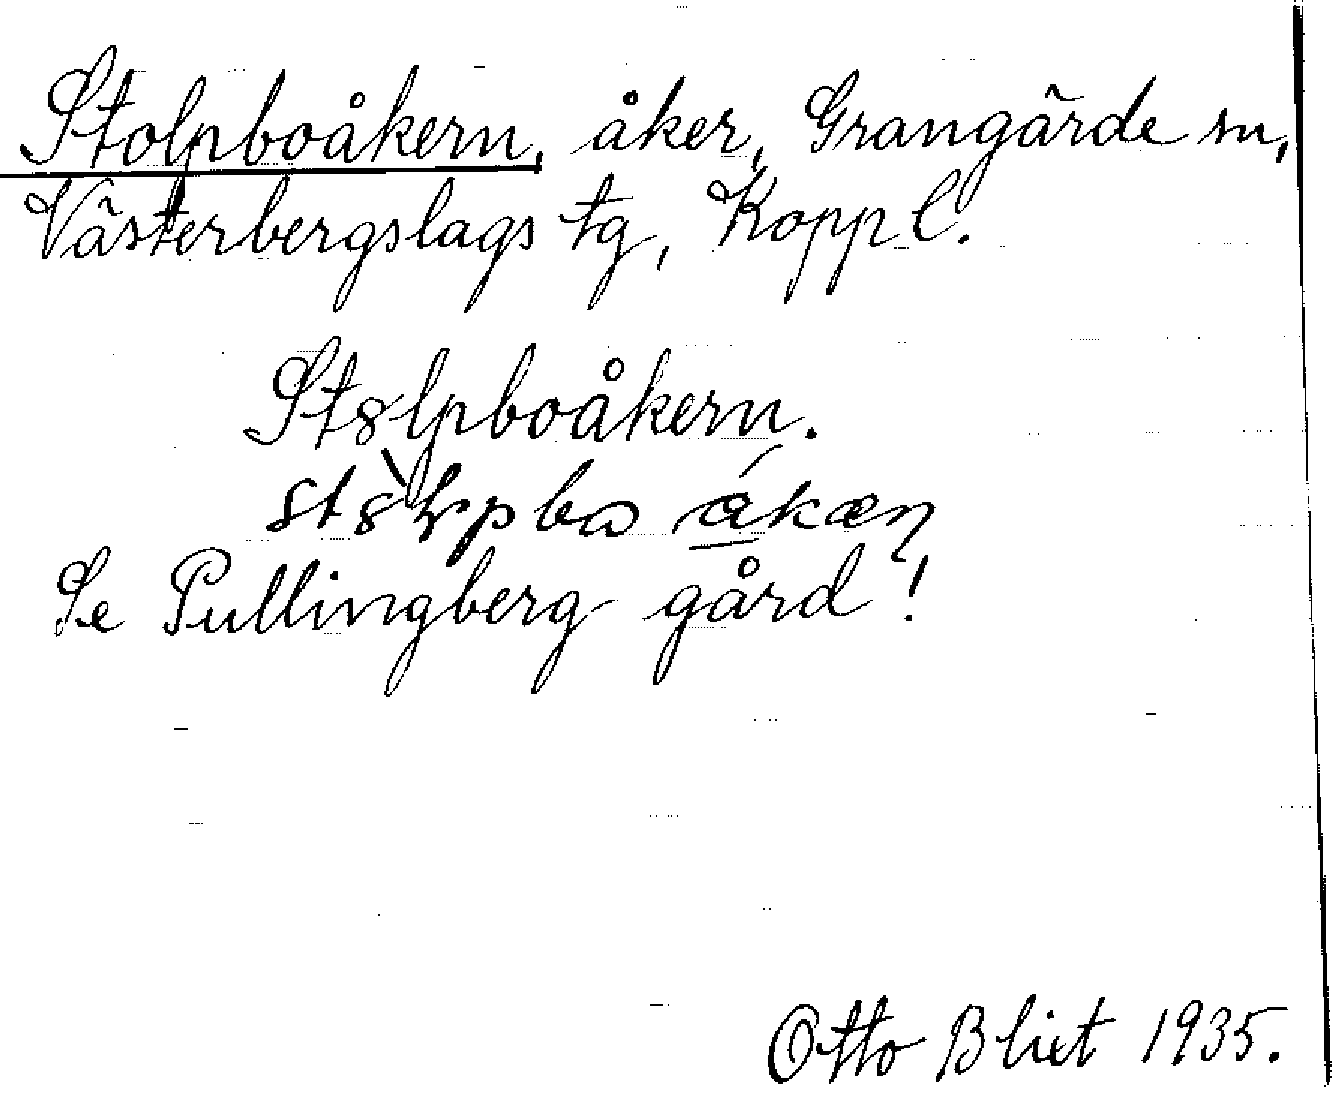 Stolpboåkern, åker, Grangärde sn,
Västerbergslags tg, Kopp l.
Stålpboåkern.
Se Pullingberg gård!
Otto Bliet 1935.